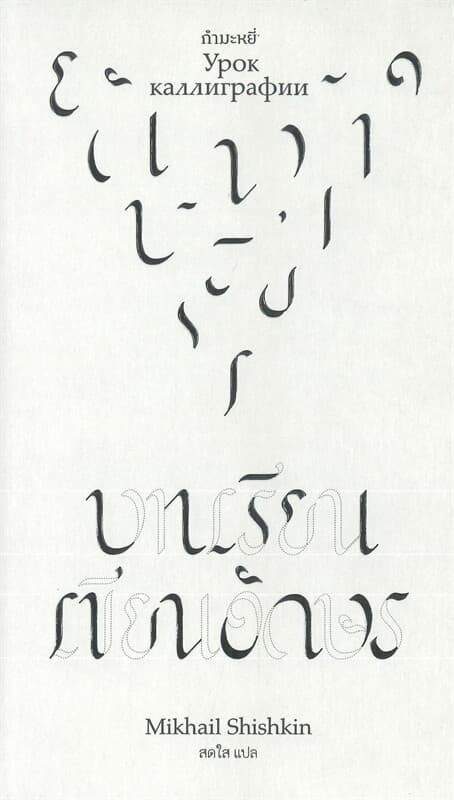 กำมะหยี่
Урок
каллиграфии
บทเรียน
เขียนอักษร
Mikhail Shishkin
สดใส แปล